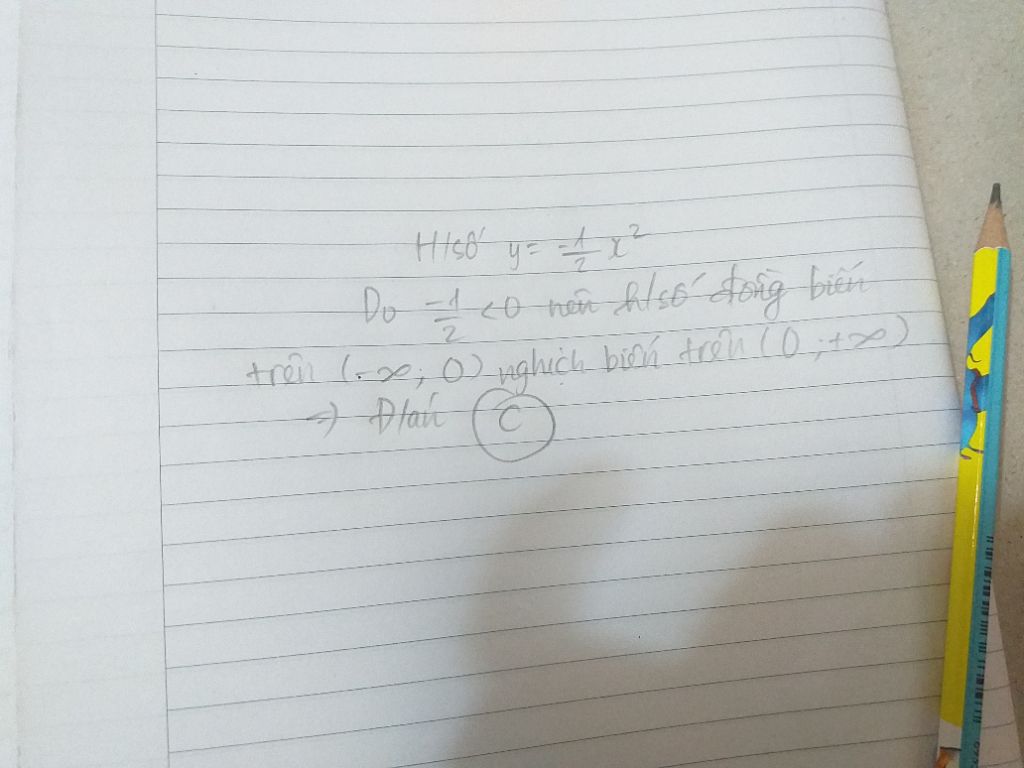 H/số y = -1/2 x²
Do -1/2 < 0 nên h/số đồng biến
trên (-∞; 0) nghịch biến trên (0; +∞)
=> Đ/án C